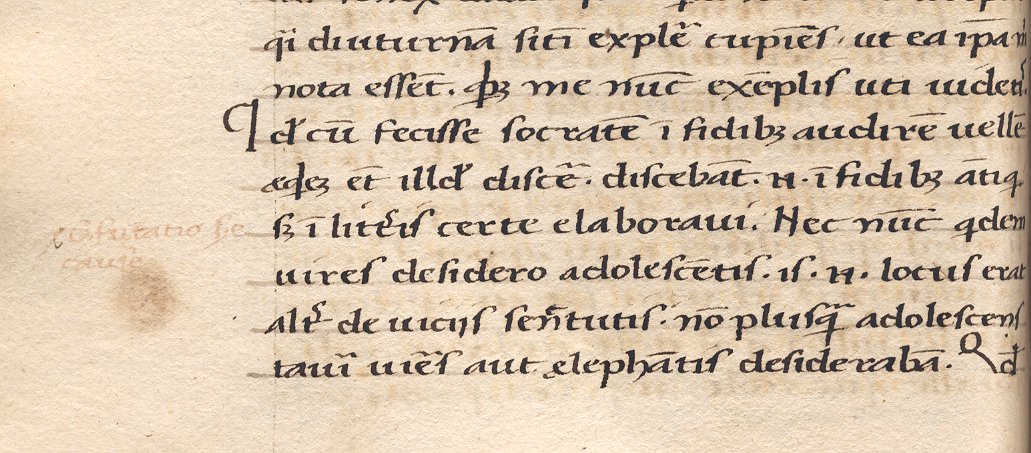 qi diuturnā sitī explē cupiēs · ut ea ipā m
nota essēt. qbꝫ me nūc exēplis uti uidetis
qd cū fecisse socratē ī fidibꝫ audirē uellē
eqdeꝫ ēt illd discē · discebāt · n · ī fidibꝫ ātiq.
sꝫ ī litis certe elaboraui. Nec nūc qdem
uires desidero adolescētis · is · n · locus erat
alt de uicijs senētutis · nō plusq̄ adolescens
taui uiēs aut elephātis desiderabā. Qd
cōfutatio se
cause